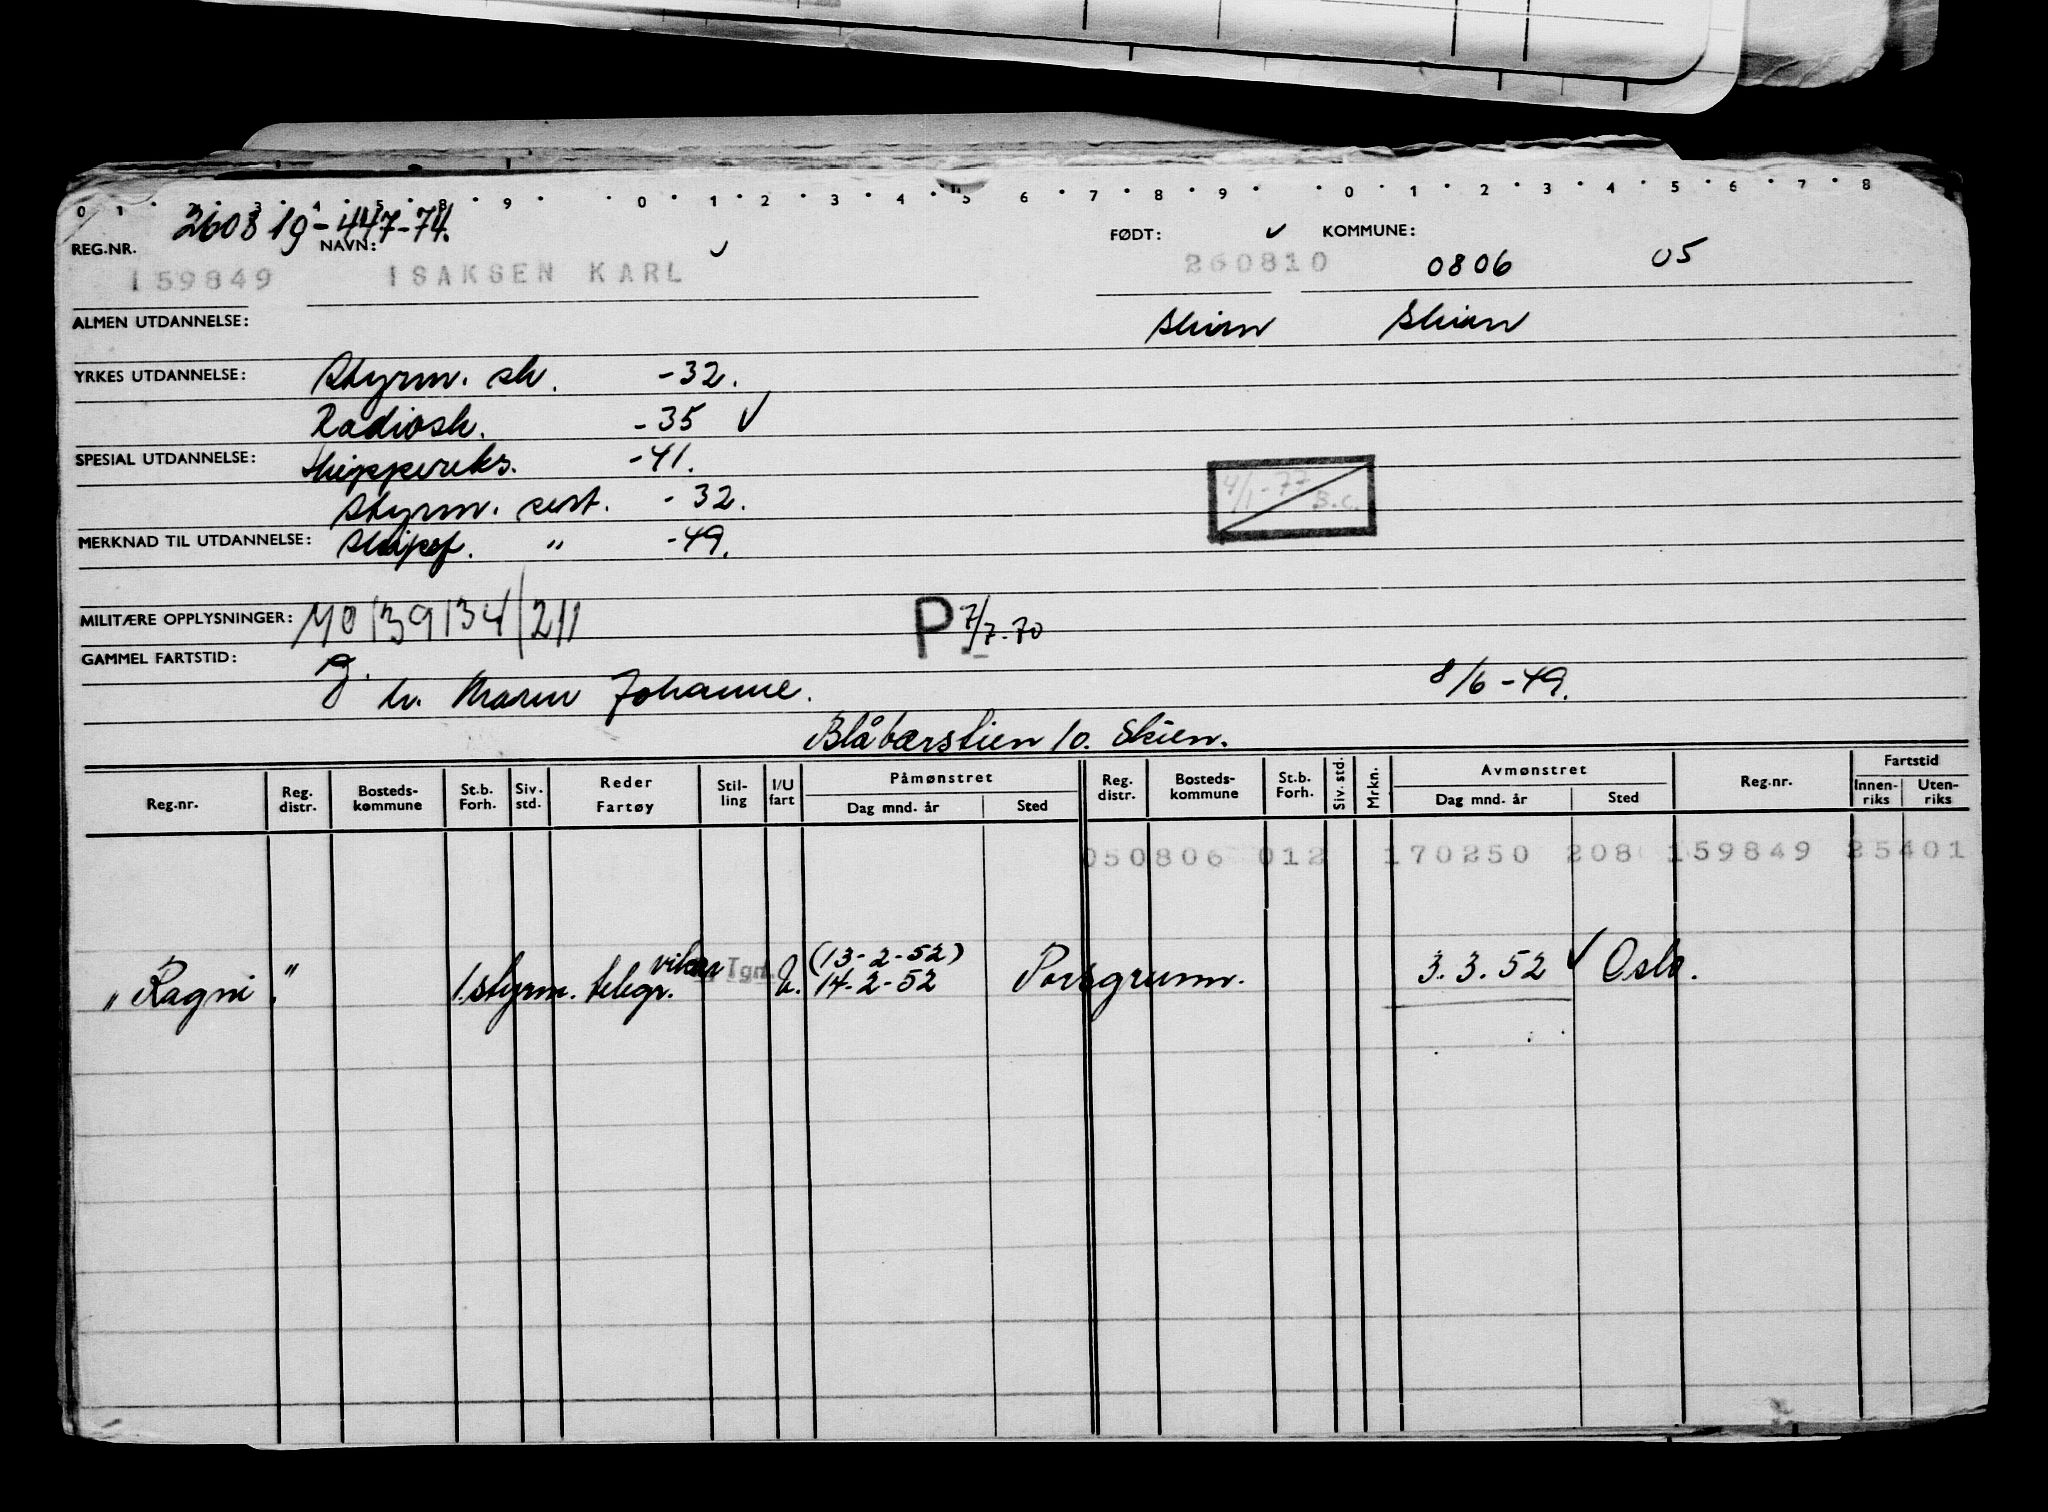 0 1 2 3 4 5 8 9 0 1 2 3 4 5 6 7 8 9 0 1 2 3 4 5 6 7 8
260819-44774.
REG.NR. NAVN: FØDT: KOMMUNE:
159849 ISAKSEN KARL 260810 0806 05
ALMEN UTDANNELSE: Skien Skien
YRKES UTDANNELSE: Styrm. sk. -32.
Radiosk. -35
SPESIAL UTDANNELSE: Skippereks. -41.
Styrm. sert. -32.
4/1-77 B.C.
MERKNAD TIL UTDANNELSE: Skipsf. " -49.
MILITÆRE OPPLYSNINGER: 40/39134/211 P 7/7-70
GAMMEL FARTSTID: G.
h. Maren Johanne. 8/6-49.
Blåbærstien 10. Skien.
Reg.nr. Reg. distr. Bosteds-kommune St.b. Forh. Siv. std. Reder Fartøy Stil-ling I/U fart Påmønstret Dag mnd. år Sted Reg. distr. Bosteds-kommune St.b. Forh. Siv. std. Mrkn. Avmønstret Dag mnd. år Sted Reg.nr. Fartstid Innen-riks Uten-riks
050806 012 170250 208 159849 25401
vikar (13-2-52)
"Ragni" 1.styrm. telegr. Tgrf. U. 14-2-52 Porsgrunn. 3.3.52 Oslo.